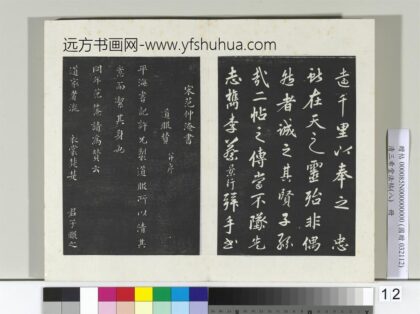 远方书画网-www.yfshuhua.com
遠千里以奉之忠
獻在天之靈殆非偶
然者誠之其賢子孫
哉二帖之傳當不隳先
志攜李蔡景行拜手書
宋范仲淹書
道服贊 并序
平海書記許兄製道服所以清其
意而潔其身也
同年范仲淹請為贊云
道家者流 衣裳楚楚 君子服之
12